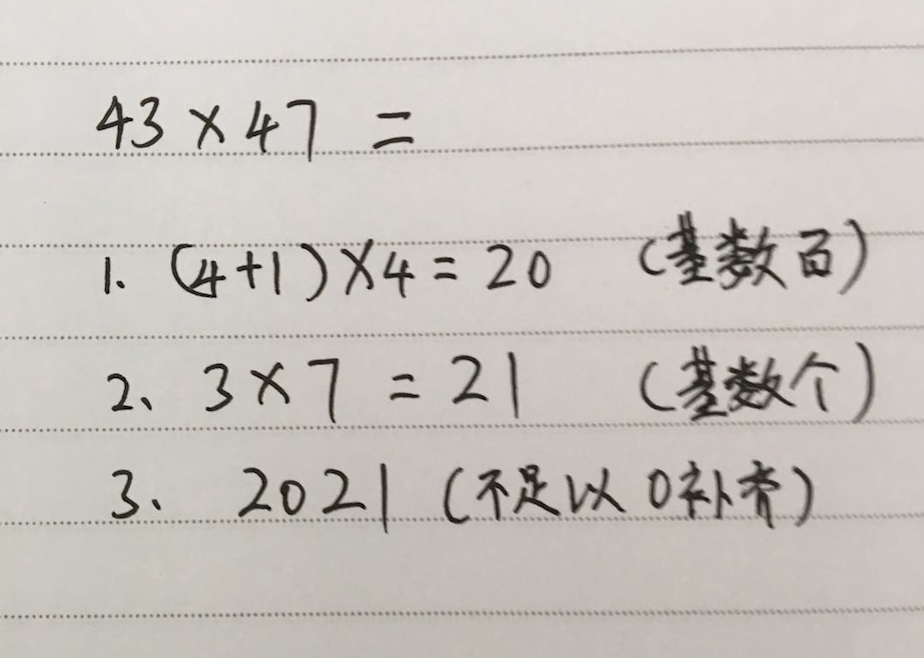 43×47 =
1. (4+1)×4=20 (基数百)
2、3×7=21 (基数个)
3、2021 (不足以0补齐)